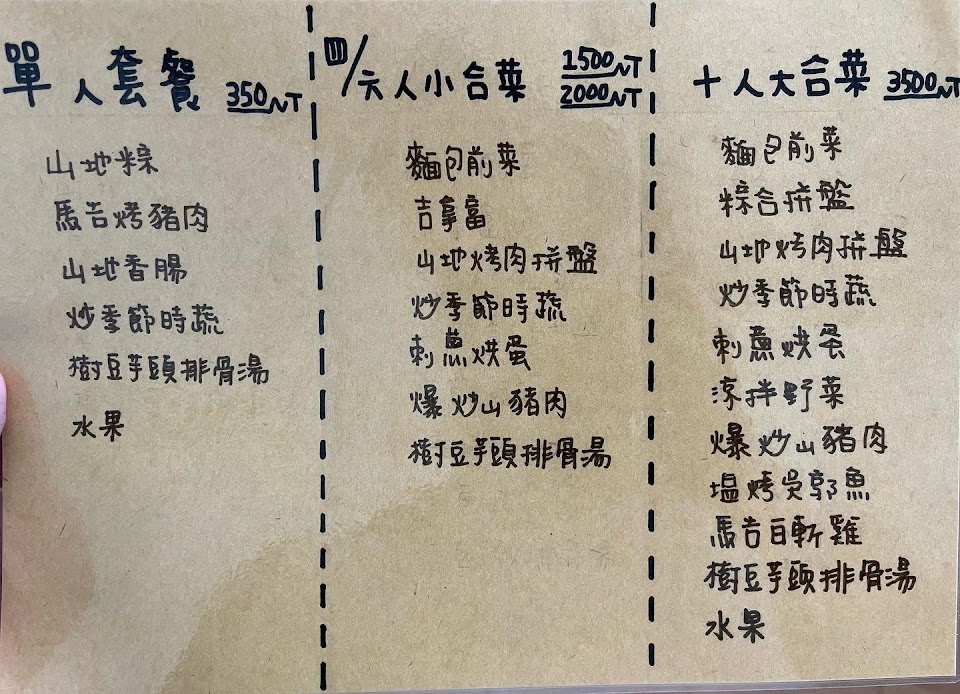 單人套餐 350NT
山地粽
馬告烤豬肉
山地香腸
炒季節時蔬
樹豆芋頭排骨湯
水果
四/六人小合菜 1500NT 2000NT
麵包前菜
吉拿富
山地烤肉拼盤
炒季節時蔬
刺蔥烘蛋
爆炒山豬肉
樹豆芋頭排骨湯
十人大合菜 3500NT
麵包前菜
粽合拼盤
山地烤肉拼盤
炒季節時蔬
刺蔥烘蛋
涼拌野菜
爆炒山豬肉
塩烤吳郭魚
馬告白斬雞
樹豆芋頭排骨湯
水果